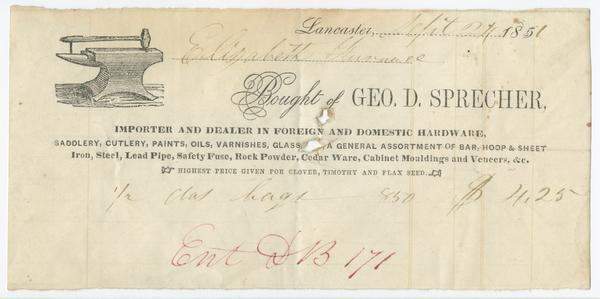 Lancaster, Sept 24 1851
Elizabeth Furnace
Bought of GEO. D. SPRECHER,
IMPORTER AND DEALER IN FOREIGN AND DOMESTIC HARDWARE,
SADDLERY, CUTLERY, PAINTS, OILS, VARNISHES, GLASS A GENERAL ASSORTMENT OF BAR, HOOP & SHEET
Iron, Steel, Lead Pipe, Safety Fuse, Rock Powder, Cedar Ware, Cabinet Mouldings and Veneers, &c.
HIGHEST PRICE GIVEN FOR CLOVER, TIMOTHY AND FLAX SEED.
1/2 dos bags 850 $ 4,25
Ent D B 171